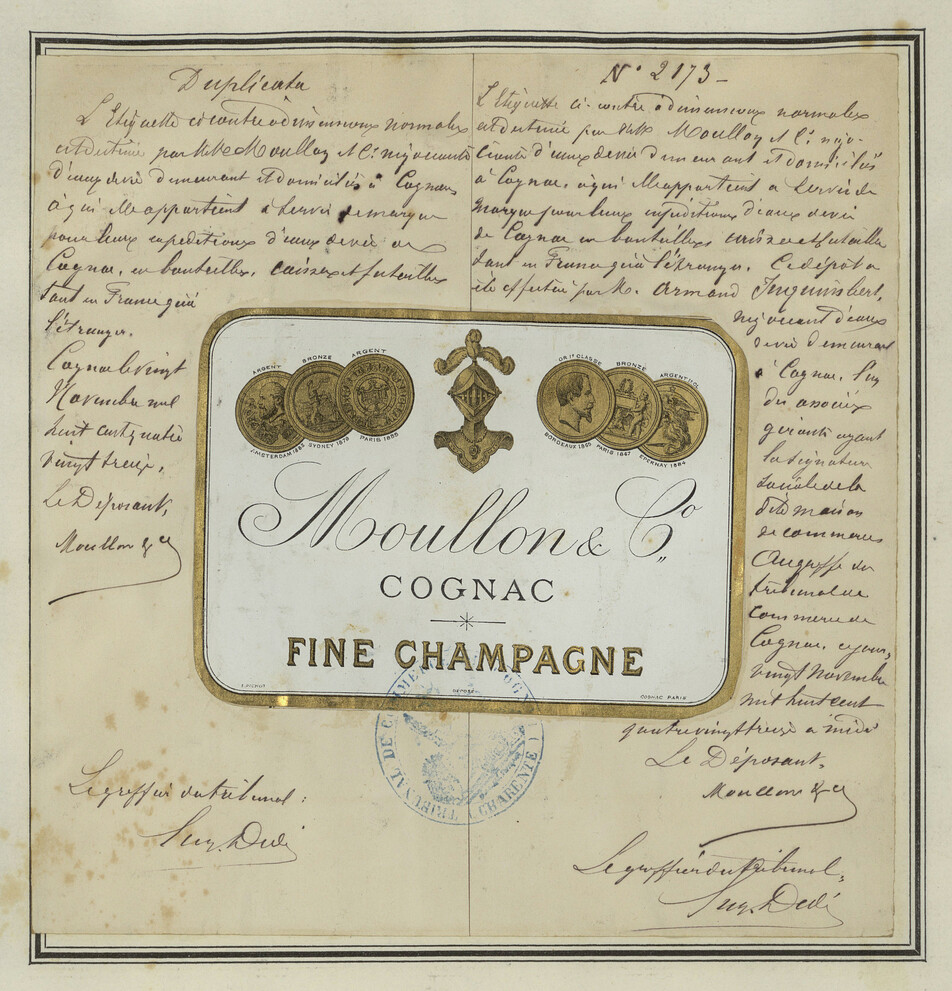 Duplicata
L'Etiquette ci contre a dimensions normales
est destinée par MM. Moullon & Cie négociants
d'eaux de vie demeurant et domiciliés à Cognac
à qui elle appartient à servir de marque
pour leurs expeditions d'eaux de vie de
Cognac, en bouteilles, caisses et futailles
tant en France qu'à
l'étranger.
Cognac le vingt
Novembre mil
huit cent quatre
vingt treize.
Le Déposant,
Moullon & Cie
Le greffier du tribunal:
N° 2173
L'Etiquette ci-contre à dimensions normales
est destinée par MM. Moullon & Cie négo-
ciants d'eaux de vie demeurant et domiciliés
à Cognac, à qui elle appartient à servir de
marque pour leurs expéditions d'eaux de vie
de Cognac en bouteilles, caisses et futailles
tant en France qu'à l'étranger. Ce dépôt a
été effectué par M. Armand Inquimbert,
négociant d'eaux
de vie demeurant
à Cognac, l'un
des associés
gérants ayant
la signature
sociale de la
dite maison
de commerce
Au greffe du
tribunal de
commerce de
Cognac, ce jour,
vingt Novembre
mil huit cent
quatre vingt treize à midi
Le Déposant,
Moullon & Cie
Le greffier du tribunal,
ARGENT BRONZE ARGENT
AMSTERDAM 1883 SYDNEY 1879 PARIS 1885
OR 1re CLASSE BRONZE ARGENT HOL
BORDEAUX 1865 PARIS 1867 EPERNAY 1884
Moullon & Co
COGNAC
FINE CHAMPAGNE
DEPOSÉ
COGNAC PARIS
TRIBUNAL DE COMMERCE COGNAC (CHARENTE)